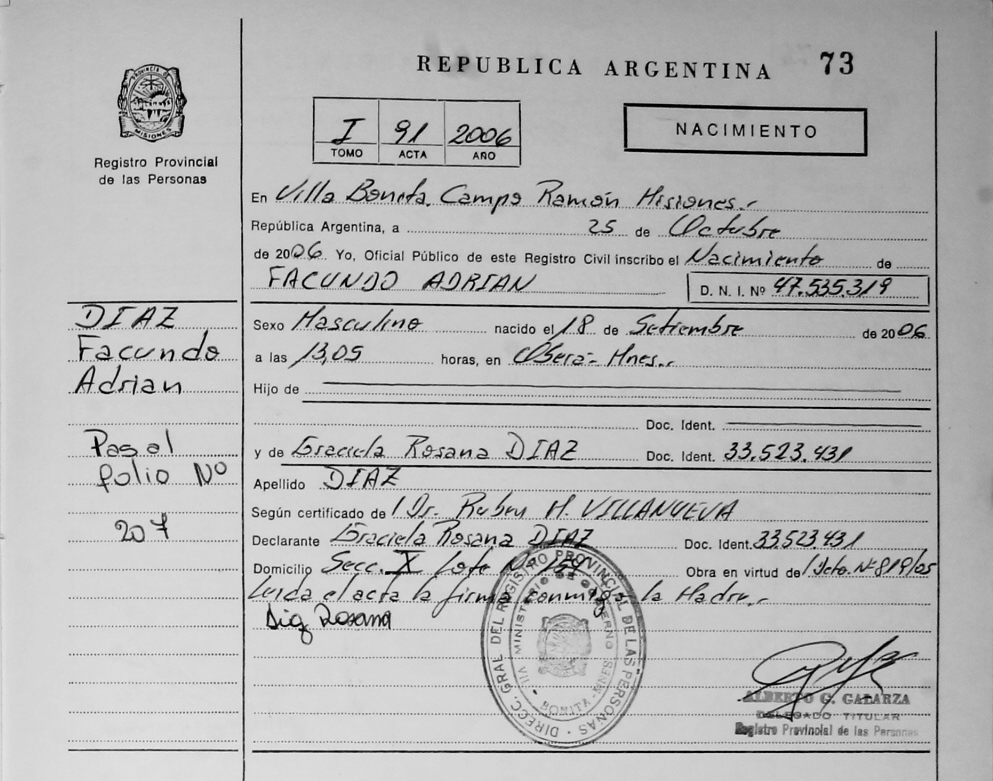 REPUBLICA ARGENTINA 73
PROVINCIA DE MISIONES
Registro Provincial
de las Personas
I 91 2006
TOMO ACTA AÑO
NACIMIENTO
En Villa Bonita, Campo Ramón Misiones.
República Argentina, a 25 de Octubre
de 2006 Yo, Oficial Público de este Registro Civil inscribo el Nacimiento de
FACUNDO ADRIAN D. N. I. Nº 47.535.319
DIAZ
Facundo
Adrian
Pasa al
folio Nº
207
Sexo Masculino nacido el 18 de Setiembre de 2006
a las 13,05 horas, en Oberá - Mnes.
Hijo de
Doc. Ident.
y de Graciela Rosana DIAZ Doc. Ident. 33.523.431
Apellido DIAZ
Según certificado de Dr. Ruben H. VILLANUEVA
Declarante Graciela Rosana DIAZ Doc. Ident. 33.523.431
Domicilio Secc. X Lote Nº Obra en virtud de Dcto. Nº 819/05
Leida el acta la firma conmigo la Madre.
Diaz Rosana
DIRECC. GRAL DEL REGISTRO PROVINCIAL DE LAS PERSONAS
MINISTERIO DE GOBIERNO
BONITA - MNES.
ALBERTO G. GALARZA
DELEGADO TITULAR
Registro Provincial de las Personas